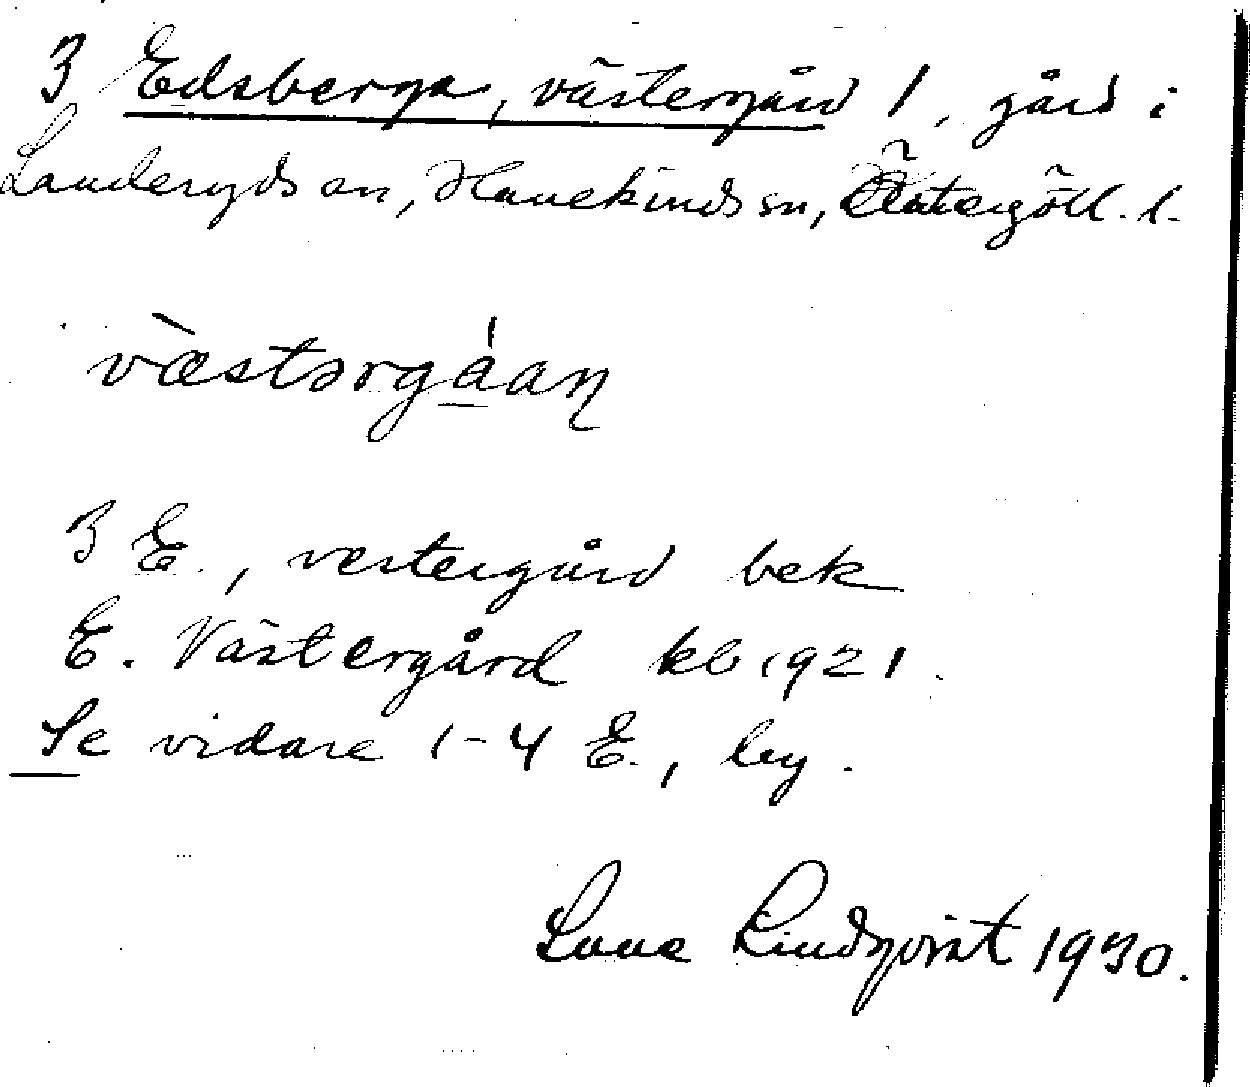 3 Edsberga, västergård 1, gård i
Landeryds sn, Hanekinds sn, Östergötl. l.
væstərgáan
3 E., vestergård bek
E. Västergård kb 1921.
Se vidare 1-4 E., by.
Lindqvist 1930.